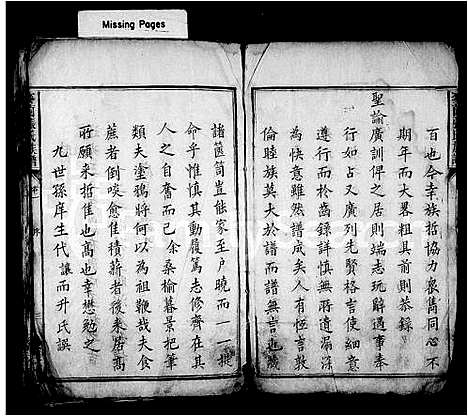 Missing Pages
百也今幸族哲協力裒雋同心不
期年而大畧粗具前則恭錄
聖諭廣訓俾之居則端志玩辭遇事奉
行如占又廣列先賢格言使細意
遵行而於齒錄詳慎無所遺漏深
為快意雖然譜成矣人有恒言敦
倫睦族莫大於譜而譜無言也藏
諸篋笥豈能家至戶曉而一一提
命乎惟慎其動履篤志修齊在其
人之自奮而已余桑榆暮景把筆
類夫塗鴉將何以為祖鞭哉夫食
蔗者倒啖愈佳積薪者後來居高
所願來哲隹也高也幸懋勉之
九世孫庠生代讓而升氏譔